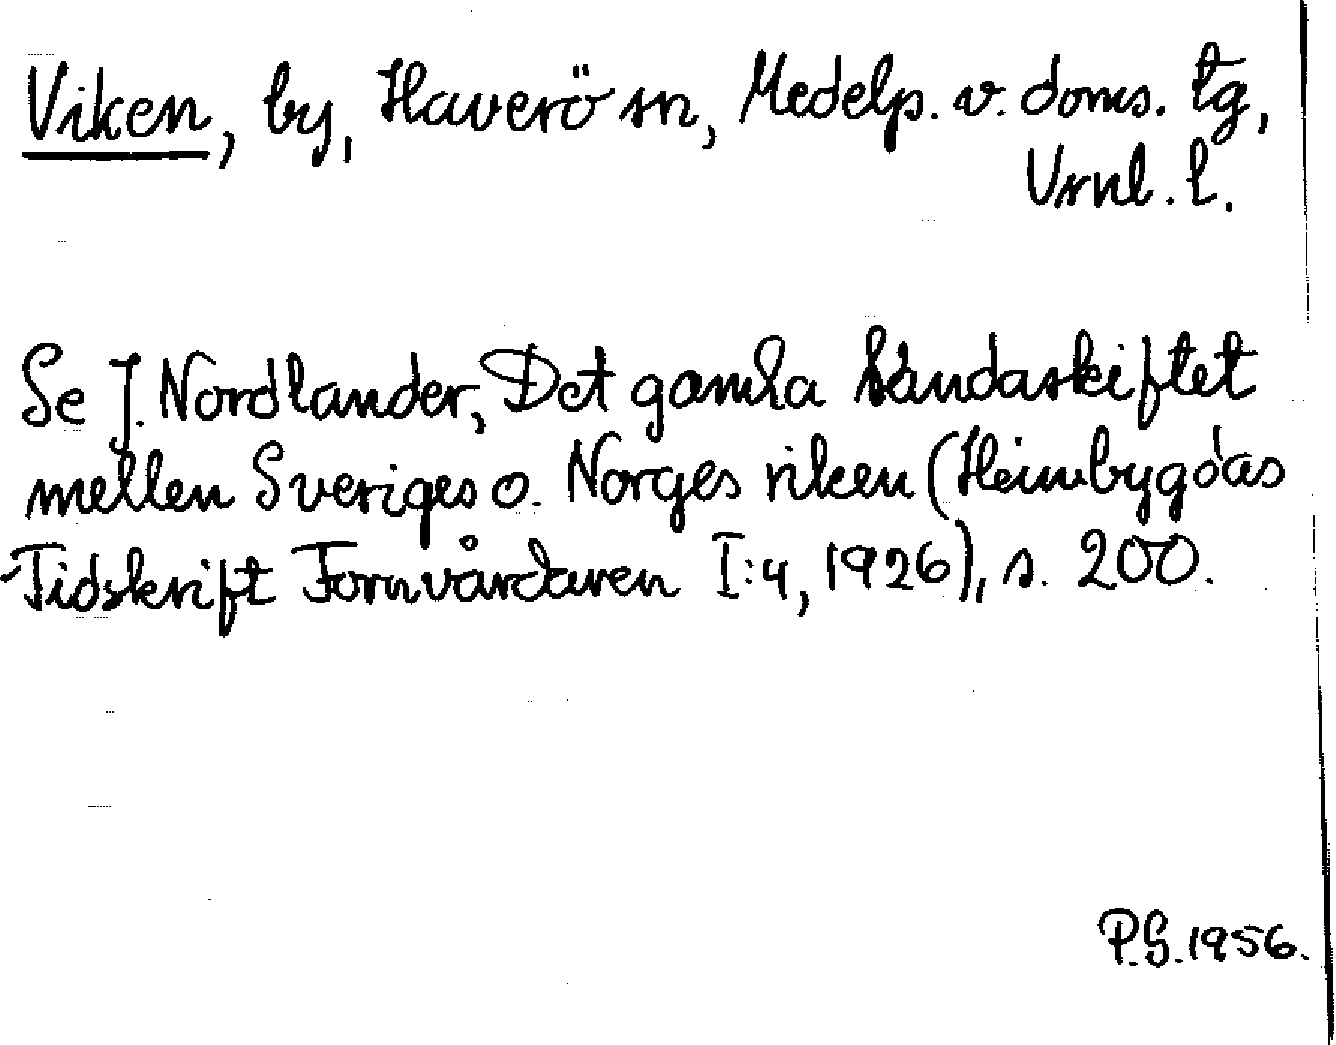 Viken, by, Haverö sn, Medelp. v. doms. tg,
Vrnl. l.
Se J. Nordlander, Det gamla landaskiftet
mellen Sveriges o. Norges riken (Heimbygdas
Tidskrift Fornvårdaren I:4, 1926), s. 200.
P.G. 1956.